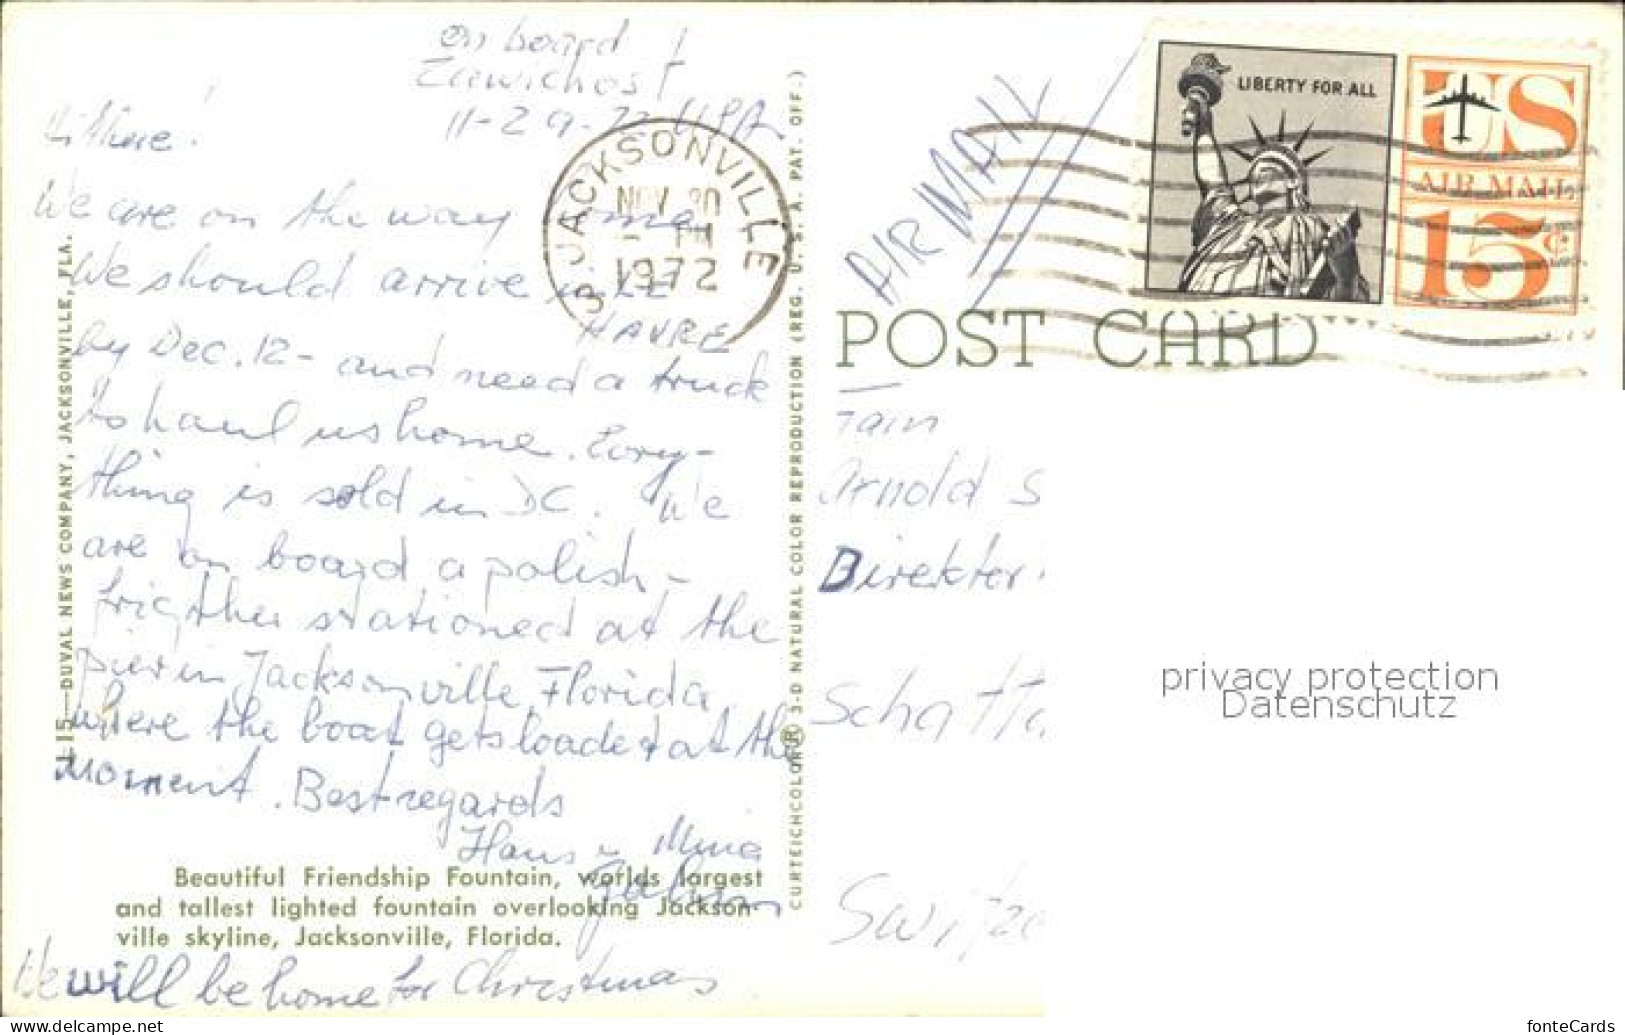 on board
11-29-72 USA
Hi there!
We are on the way home
We should arrive in LE
HAVRE
by Dec. 12- and need a truck
to haul us home. Every-
thing is sold in DC. We
are on board a polish-
frigther stationed at the
pier in Jacksonville Florida
where the boat gets loaded at the
moment. Best regards
Hans u Mina
Beautiful Friendship Fountain, worlds largest
and tallest lighted fountain overlooking Jackson-
ville skyline, Jacksonville, Florida.
We will be home for Christmas
J-15—DUVAL NEWS COMPANY, JACKSONVILLE, FLA.
CURTEICHCOLOR® 3-D NATURAL COLOR REPRODUCTION (REG. U. S. A. PAT. OFF.)
JACKSONVILLE
NOV 30
PM
1972
AIR MAIL
LIBERTY FOR ALL
US
AIR MAIL
15¢
POST CARD
Fam
Arnold S
Direktor
Schatta
Switze
privacy protection
Datenschutz
fonteCards
www.delcampe.net